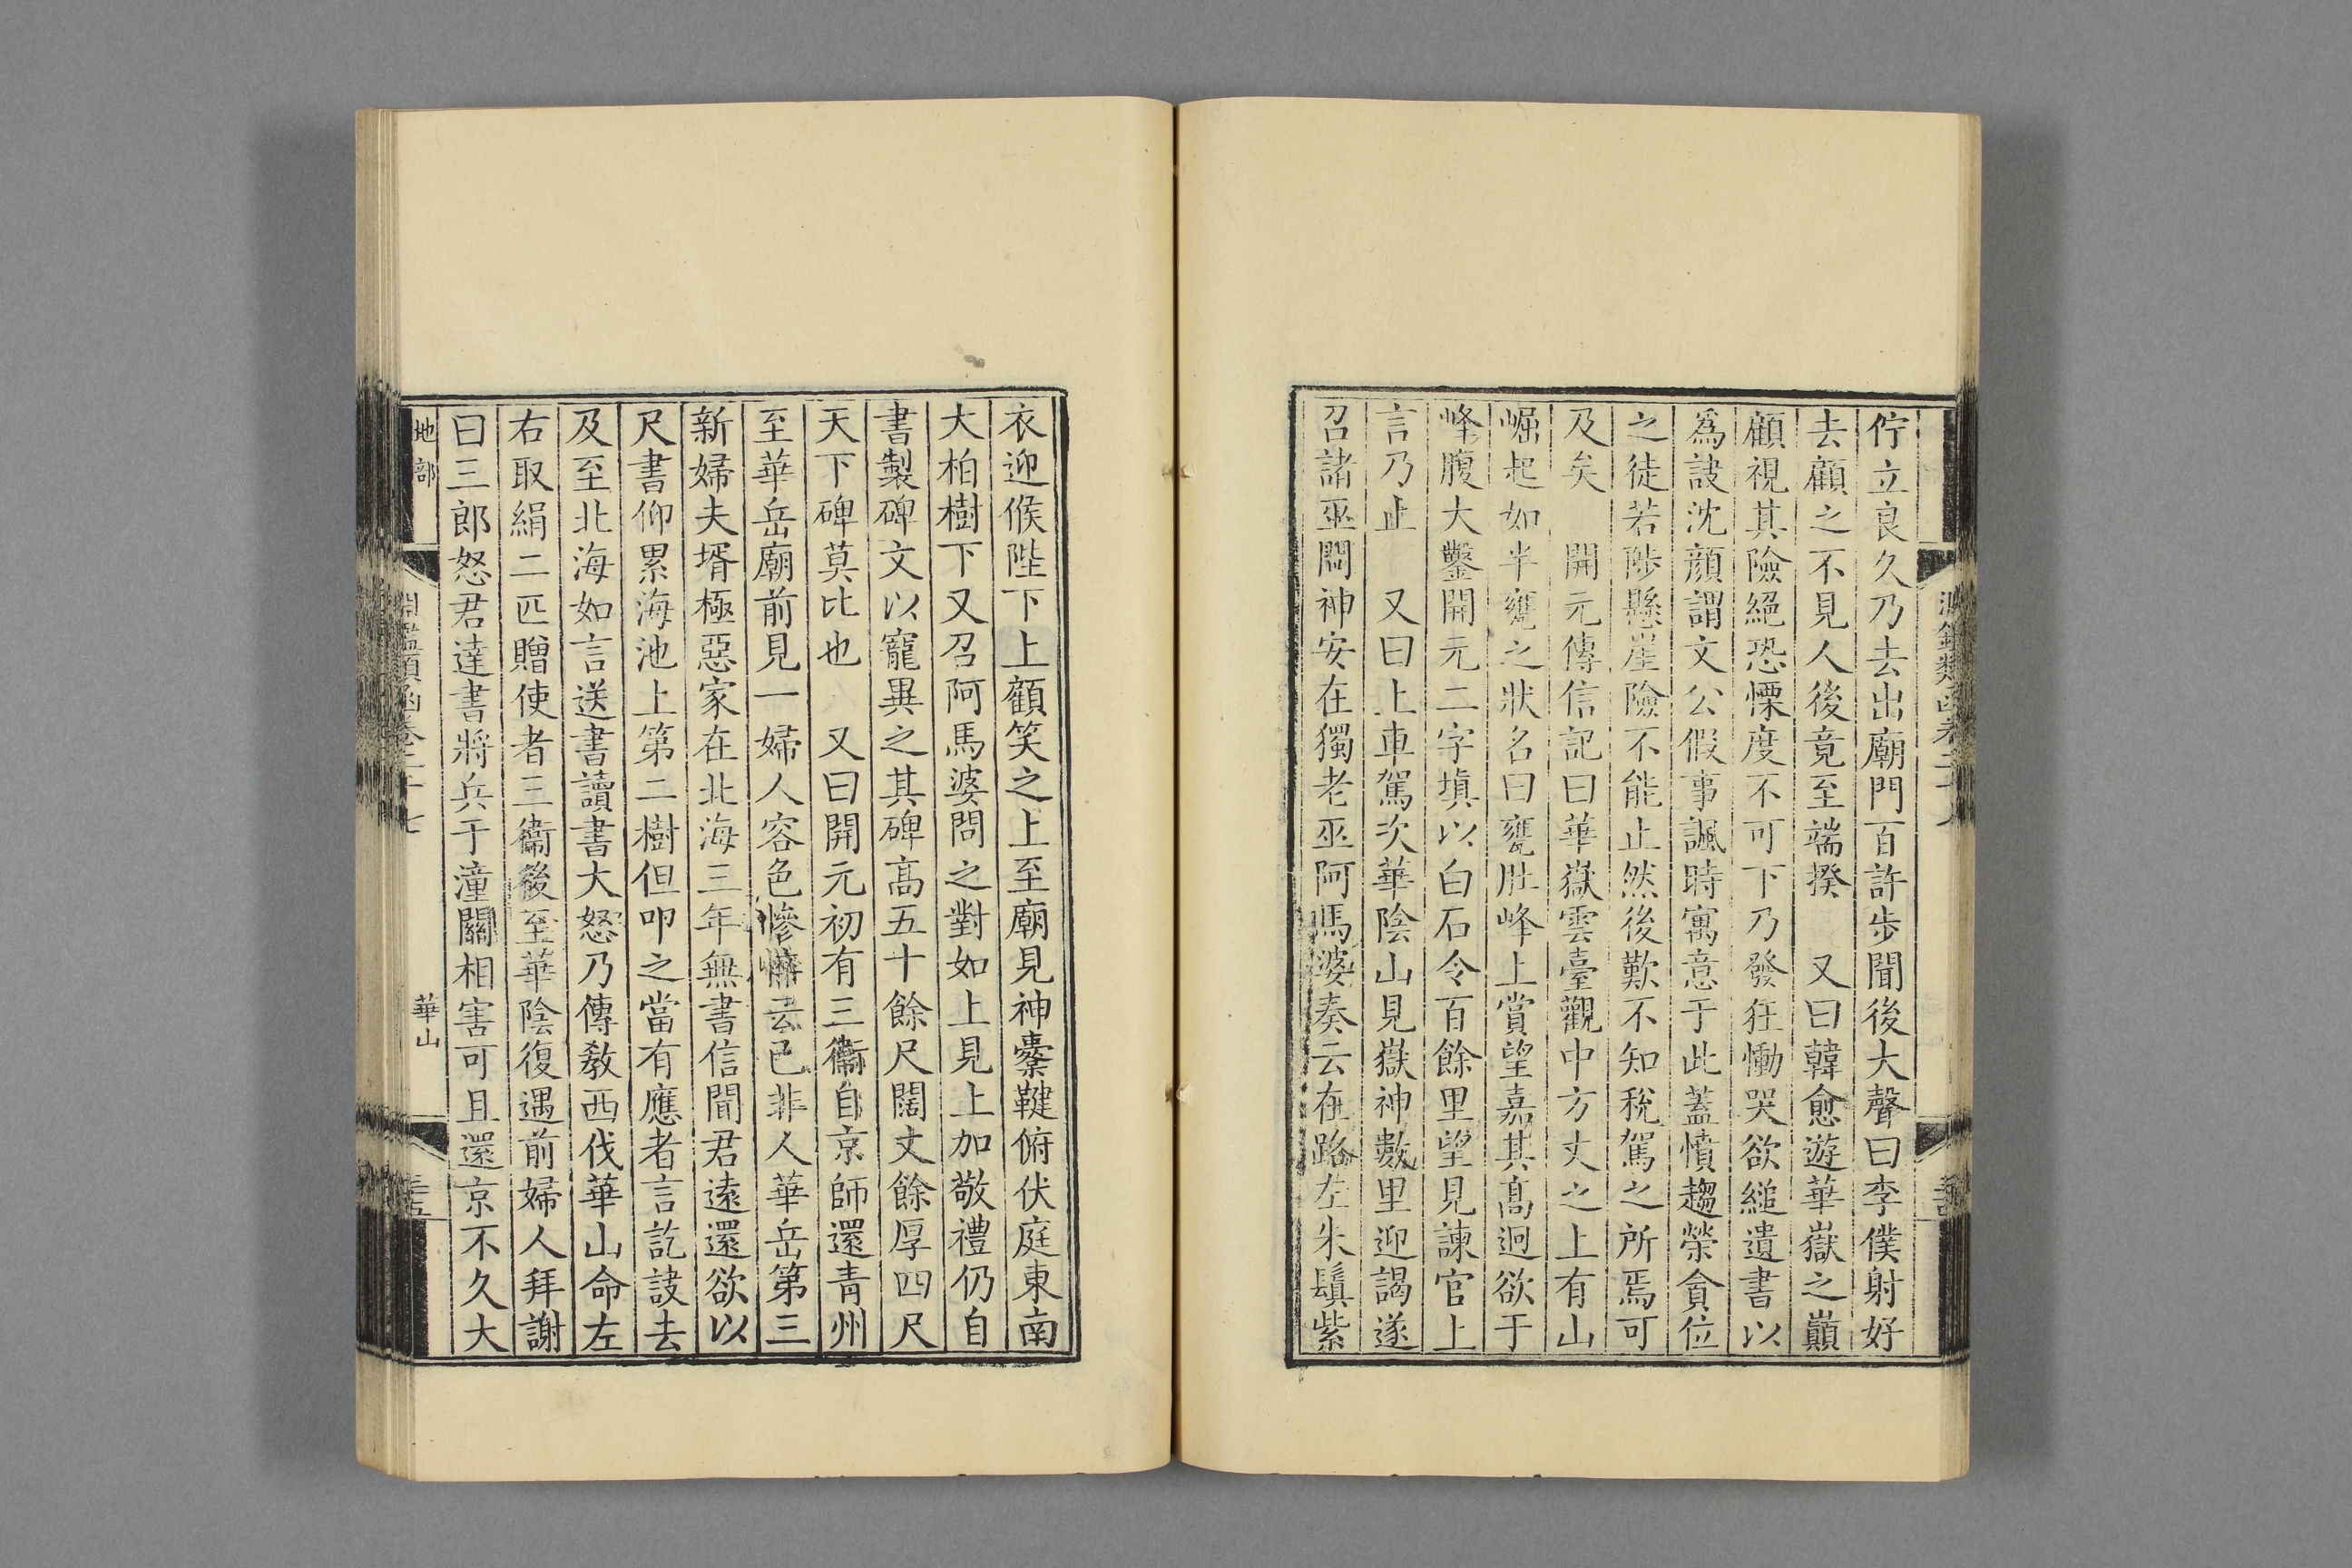 佇立良久乃去出廟門百許步聞後大聲曰李僕射好
去顧之不見人後竟至端揆　又曰韓愈遊華嶽之巔
顧視其險絕恐慄度不可下乃發狂慟哭欲縋遺書以
爲訣沈顏謂文公假事諷時寓意于此蓋憤趨榮貪位
之徒若陟懸崖險不能止然後歎不知稅駕之所焉可
及矣　開元傳信記曰華嶽雲臺觀中方丈之上有山
崛起如半甕之狀名曰甕肚峰上賞望嘉其高迥欲于
峰腹大鑿開元二字塡以白石令百餘里望見諫官上
言乃止　又曰上車駕次華陰山見嶽神數里迎謁遂
召諸巫問神安在獨老巫阿馬婆奏云在路左朱鬚紫
衣迎候陛下上顧笑之上至廟見神櫜鞬俯伏庭東南
大柏樹下又召阿馬婆問之對如上見上加敬禮仍自
書製碑文以寵異之其碑高五十餘尺闊丈餘厚四尺
天下碑莫比也　又曰開元初有三衞自京師還青州
至華岳廟前見一婦人容色慘悴云已非人華岳第三
新婦夫壻極惡家在北海三年無書信聞君遠還欲以
尺書仰累海池上第二樹但叩之當有應者言訖訣去
及至北海如言送書讀書大怒乃傳敎西伐華山命左
右取絹二匹贈使者三衞後至華陰復遇前婦人拜謝
曰三郎怒君達書將兵于潼關相害可且還京不久大
地部
淵鑑類函卷二十七
華山